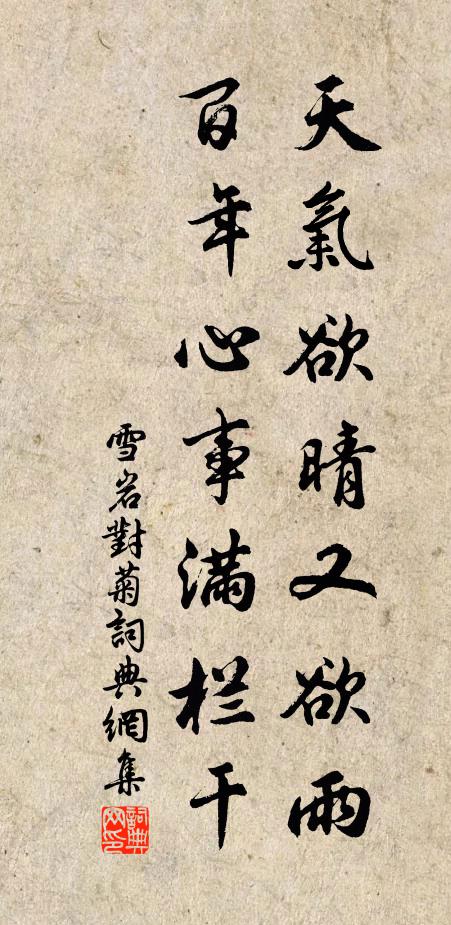 天氣欲晴又欲雨
百年心事滿栏干
雪岩對菊詞典網集
詞典网印